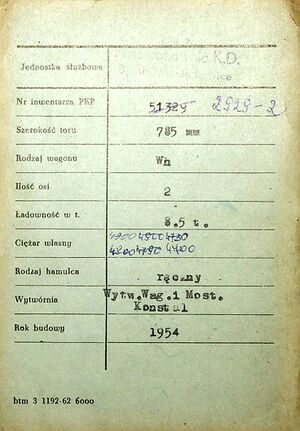 Jednostka służbowa K.D.
Nr inwentarza PKP 51329 2929-2
Szerokość toru 785 mm
Rodzaj wagonu Wn
Ilość osi 2
Ładowność w t. 8.5 t.
4900 4500 4730
Ciężar własny 4800 4750 4700
Rodzaj hamulca ręczny
Wytw.Wag.i Most.
Wytwórnia Konstal
Rok budowy 1954
btm 3 1192-62 6000